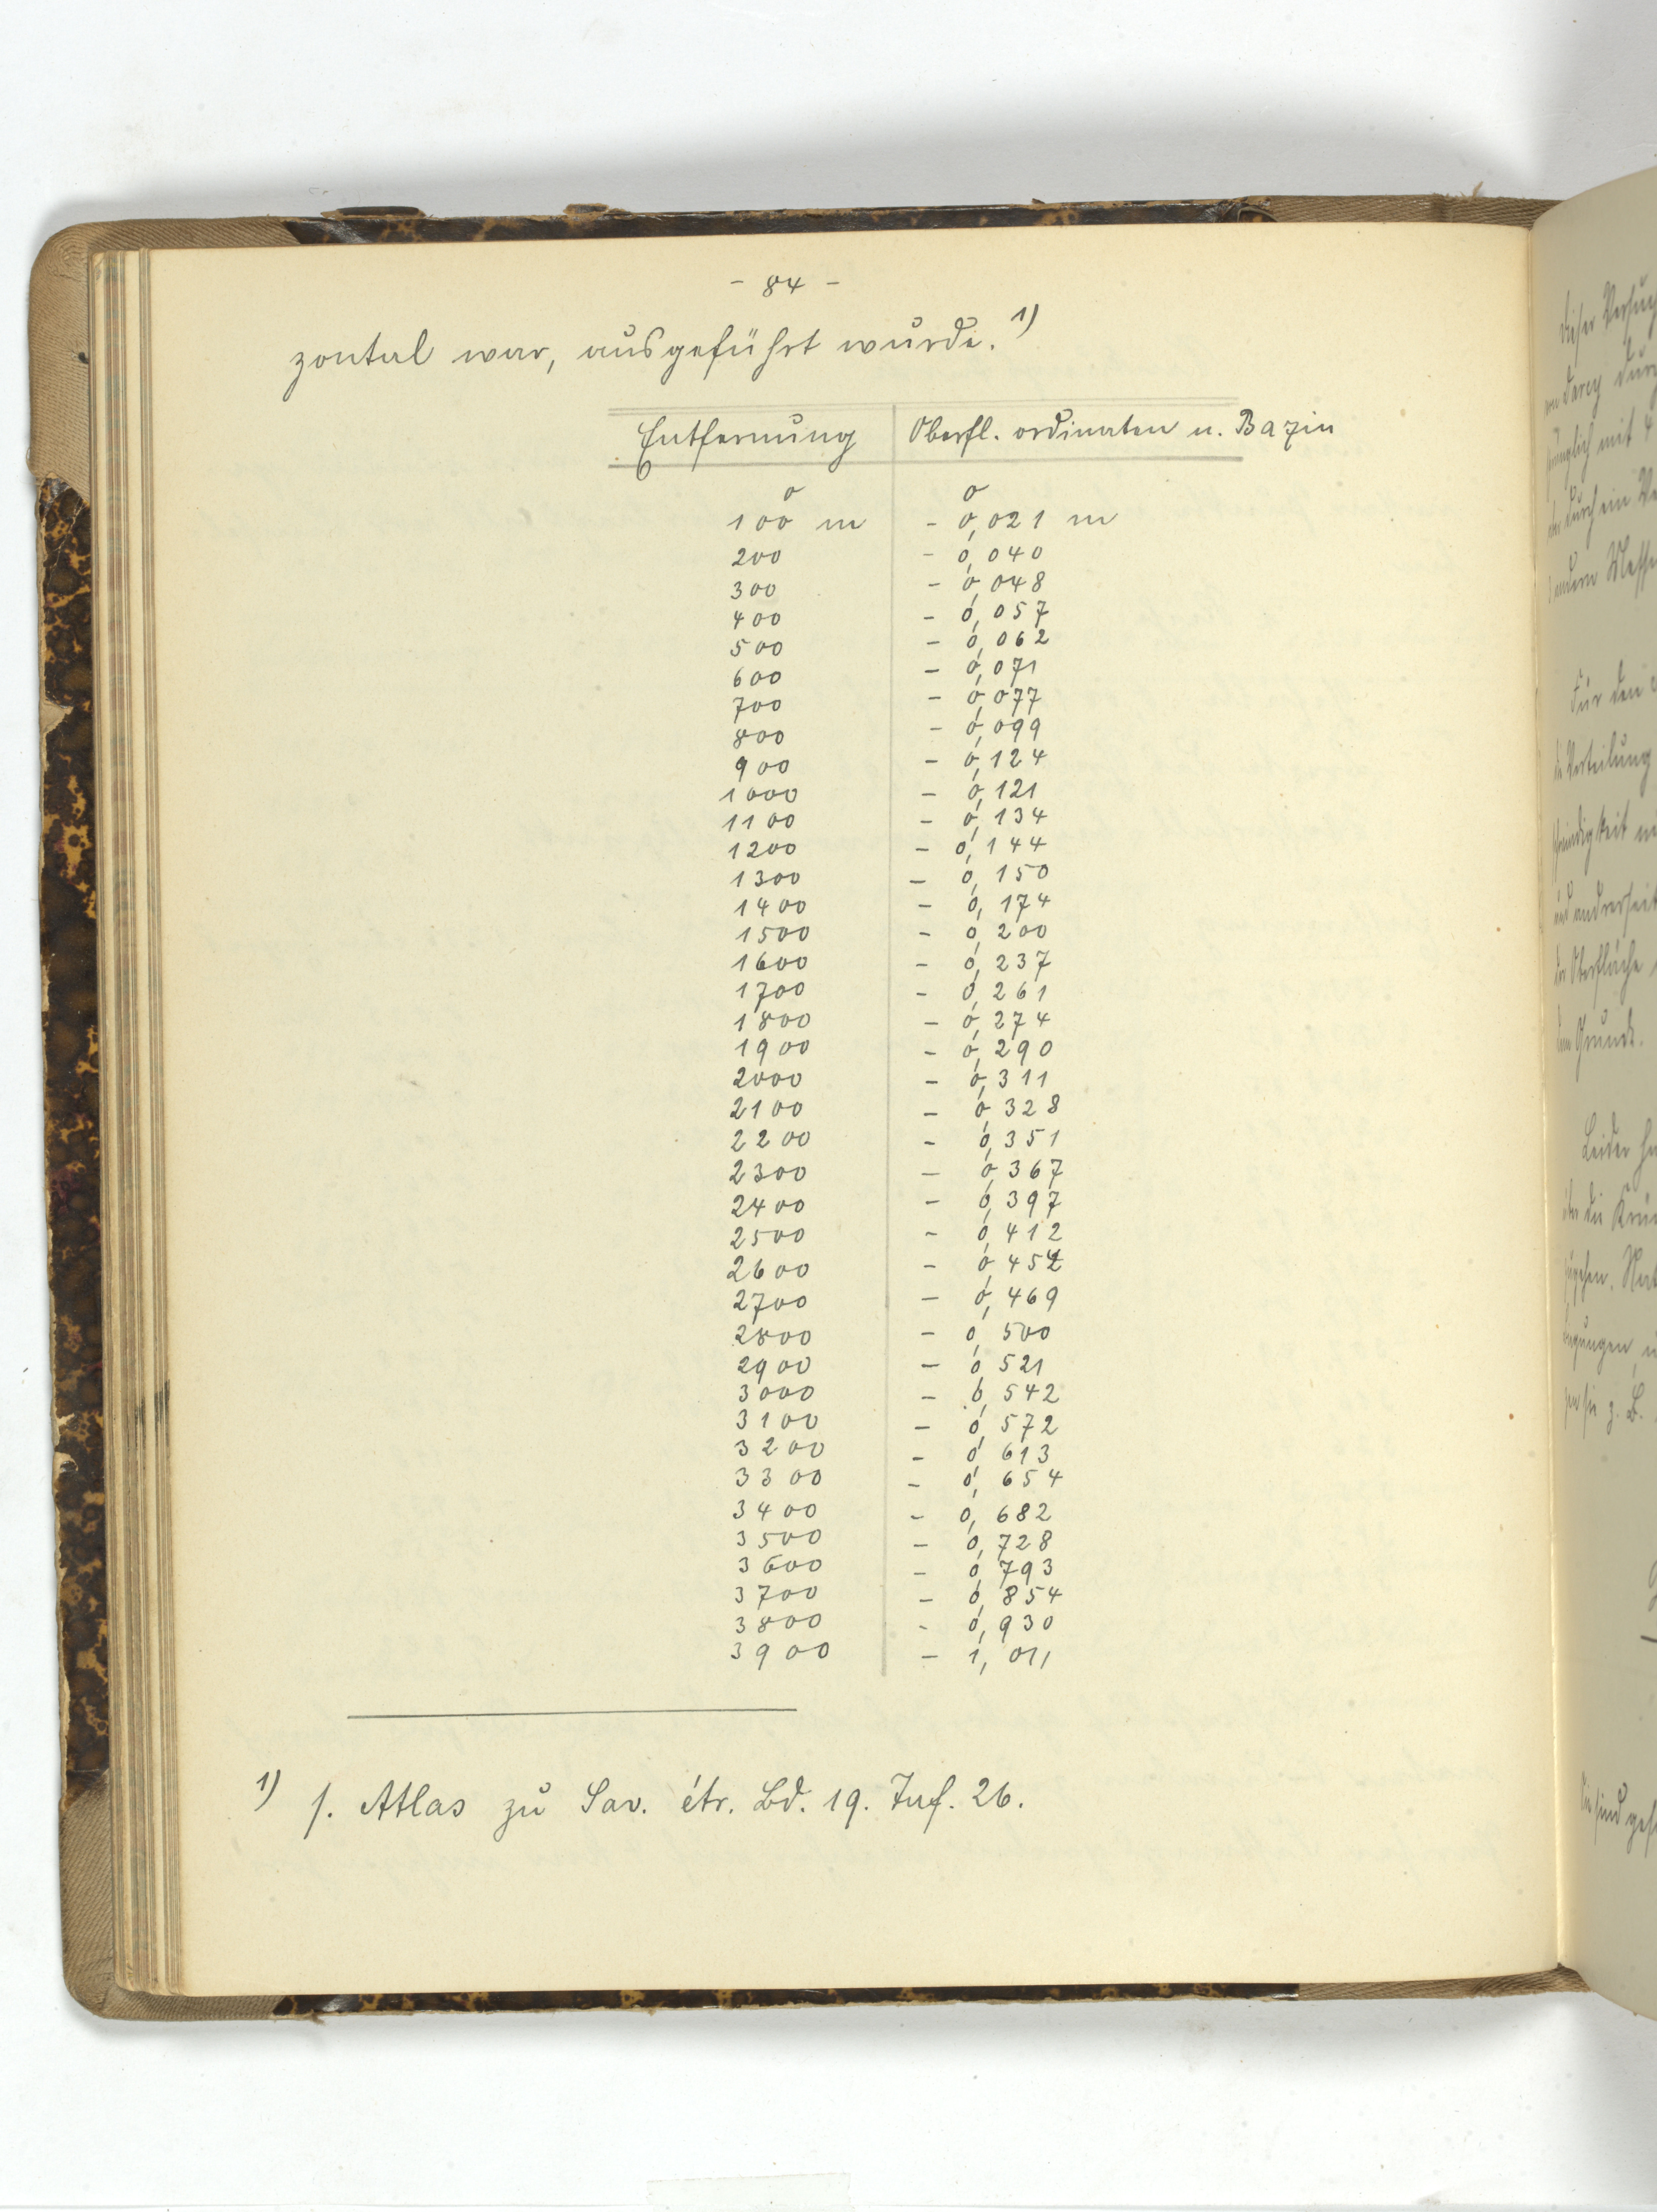 - 84 -
zontal war, ausgeführt wurde. 1)
Entfernung Oberfl. ordinaten n. Bazin
0 0
100 m - 0,021 m
200 - 0,040
300 - 0,048
400 - 0,057
500 - 0,062
600 - 0,071
700 - 0,077
800 - 0,099
900 - 0,124
1000 - 0,121
1100 - 0,134
1200 - 0,144
1300 - 0,150
1400 - 0,174
1500 - 0,200
1600 - 0,237
1700 - 0,261
1800 - 0,274
1900 - 0,290
2000 - 0,311
2100 - 0,328
2200 - 0,351
2300 - 0,367
2400 - 0,397
2500 - 0,412
2600 -
2700 - 0,469
2800 - 0,500
2900 - 0,521
3000 - 0,542
3100 - 0,572
3200 - 0,613
3300 - 0,654
3400 - 0,682
3500 - 0,728
3600 - 0,793
3700 - 0,854
3800 - 0,930
3900 - 1,011
1) s. Atlas zu Sav. étr. Bd. 19. Taf. 26.
dieser
von Darcy
mit 4
durch ein
andern
Für den
die Verteilung
und andrerseits
der Oberfläche
dem Grunde.
Leider
über die
z. B.
sind